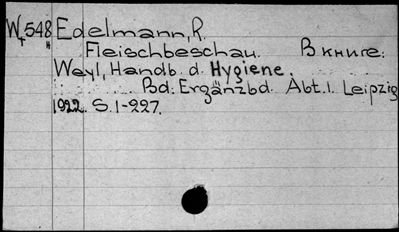 W 548 Edelmann, R.
Fleischbeschau. В книге:
Weyl, Handb. d. Hygiene.
Bd: Ergänzbd. Abt. 1. Leipzig
1922. S. 1-227.